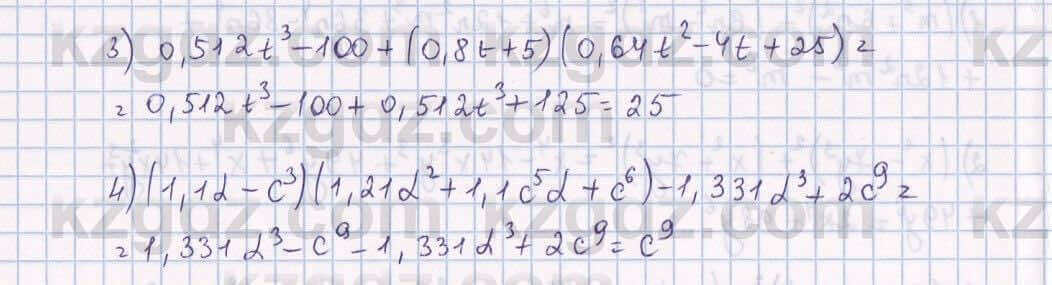 3) 0,512t³-100+(0,8t+5)(0,64t²-4t+25)=
= 0,512t³-100+0,512t³+125=25
4)(1,1d-c³)(1,21d²+1,1c⁵d+c⁶)-1,331d³+2c⁹=
=1,331d³-c⁹-1,331d³+2c⁹=c⁹
kzgdz.com